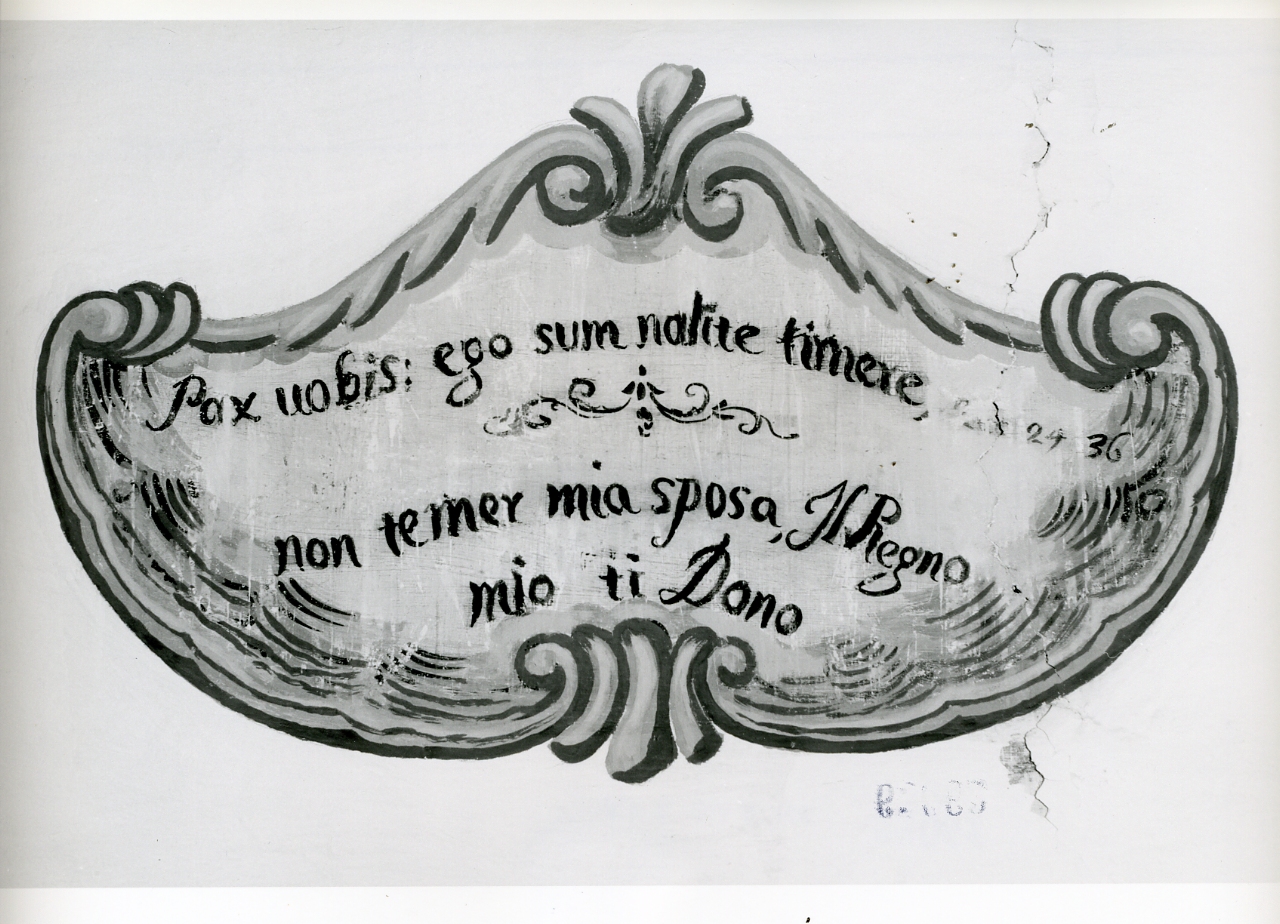 Pax uobis: ego sum nalite timere, 24 36
non temer mia sposa, Il Regno
mio ti Dono